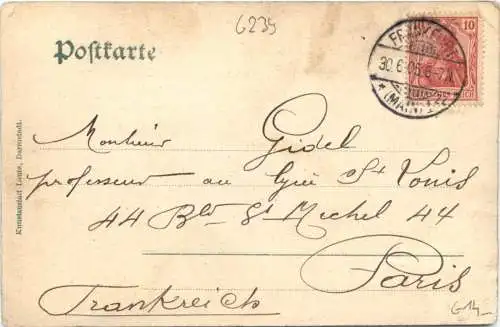 6235
Postkarte
10
30.6.05.6-7N
(MAIN)
Monsieur Gidel
professeur au lycée St Louis
44 Bld St Michel 44
Paris
Frankreich
Kunstanstalt Lautz, Darmstadt.